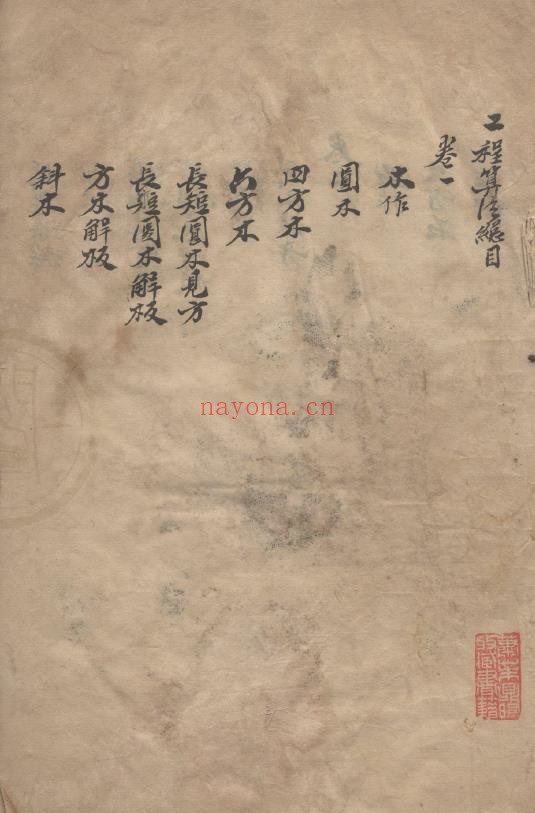 工程算法總目
卷一
木作
圓木
四方木
六方木
長短圓木見方
長短圓木解板
方木解板
斜木
nayona.cn